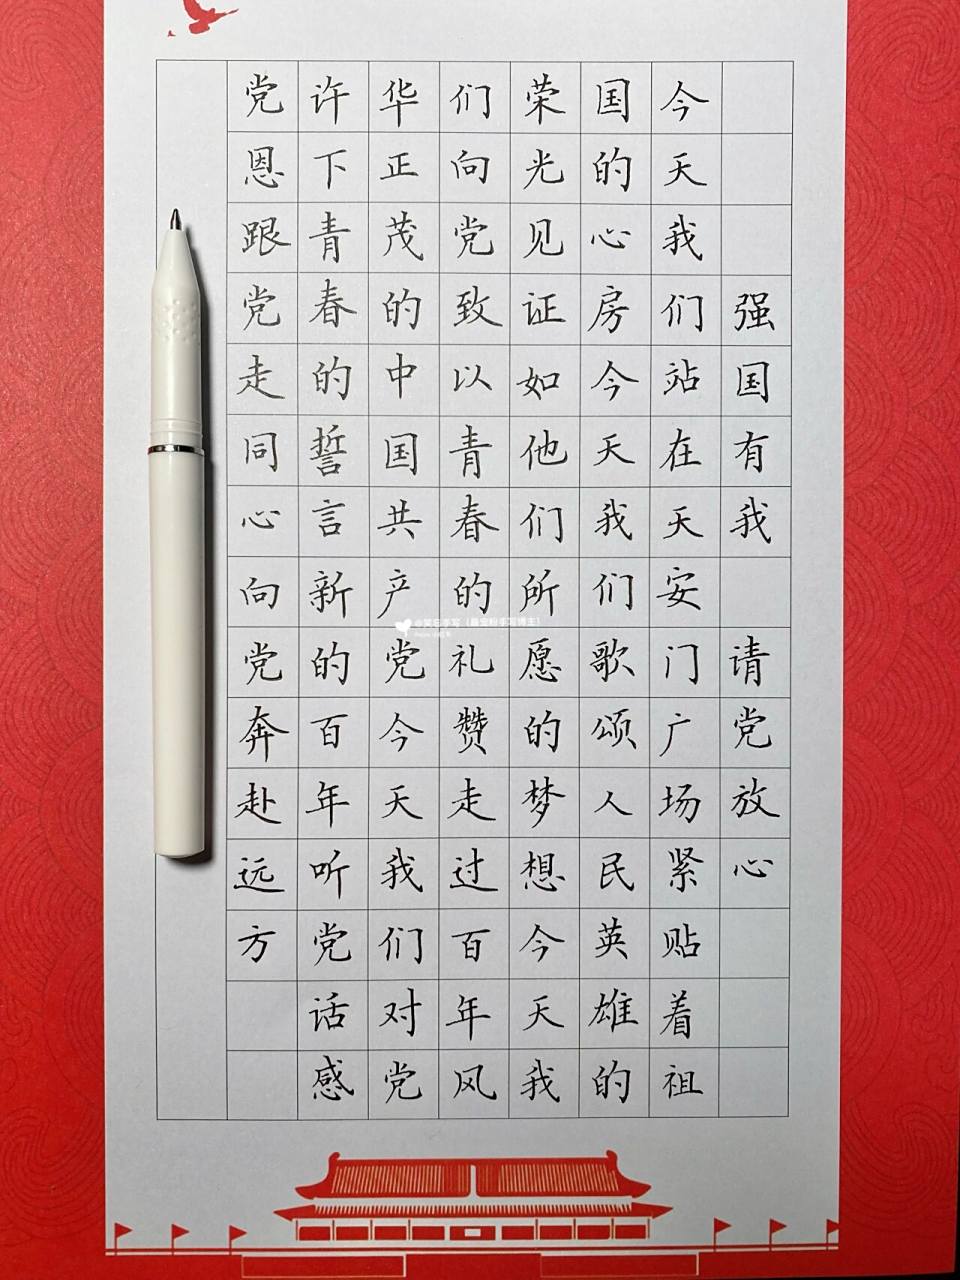 强国有我 请党放心
今天我们站在天安门广场紧贴着祖
国的心房今天我们歌颂人民英雄的
荣光见证如他们所愿的梦想今天我
们向党致以青春的礼赞走过百年风
华正茂的中国共产党今天我们对党
许下青春的誓言新的百年听党话感
党恩跟党走同心向党奔赴远方